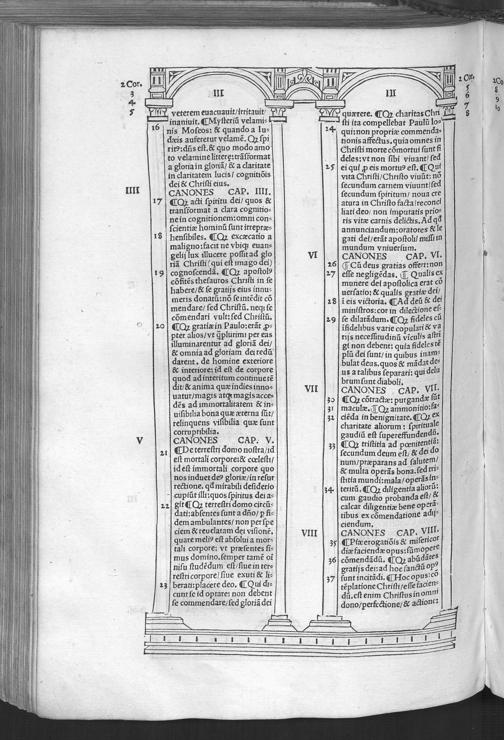 2 Cor.
3
4
5
III
veterem euacuauit/irritauit
inaniuit. ¶Mysteriū velami-
16 nis Moseos: & quando a Iu-
dæis auferetur velamē. Qꝫ spi
ritꝰ: dn̄s est. & quo modo amo
to velamine littere: trāsformat
a gloria in gloriā/ & a claritate
in claritatem lucis/ cognitiōis
dei & Christi eius.
IIII CANONES CAP. IIII.
17 ¶Qꝫ acti spiritu dei/ quos &
transformat a clara cognitio-
ne in cognitionem: omni con-
scientiæ hominū sunt irrepræ-
18 hensibiles. ¶Qꝫ excæcatio a
maligno: facit ne vbiqꝫ euan-
gelij lux illucere possit ad glo
riā Christi/ qui est imago dei/
19 cognoscendā. ¶Qꝫ apostolꝰ
cōfitēs thesauros Christi in se
habere/ & se gratijs eius innu-
meris donatū: nō se intēdit cō
mendare/ vult: sed Christū. neqꝫ se
cōmendari vult: sed Christū.
20 ¶Qꝫ gratiæ in Paulo: erāt ꝓ-
pter alios/ vt q̄plurimi per eas
illuminarentur ad gloriā dei/
& omnia ad gloriam dei redū
darent. de homine exteriore
& interiore: id est de corpore
quod ad interitum continue tē
dit/ & anima quæ indies inno-
uatur/ magis atqꝫ magis acce-
dēs ad immortalitatem & in-
uisibilia bona quæ æterna sūt/
relinquens visibilia quæ sunt
corruptibilia.
V CANONES CAP. V.
21 ¶De terrestri domo nostra/ id
est mortali corpore: & cœlesti/
id est immortali corpore quo
nos induet deꝰ gloriæ/ in resur
rectione. qđ mirabili desiderio
cupiūt illi: quos spiritus dei a-
22 git ¶Qꝫ terrestri domo circū-
dati: absentes sunt a dn̄o/ ꝑ fi
dem ambulantes/ non per spe
ciem & reuelatam dei visionē.
quare meliꝰ est absolui a mor-
tali corpore: vt præsentes si-
mus domino. semper tamē oī
nisu studēdum est/ siue in ter-
restri corpore/ siue exuti & li-
23 beran: placere deo. ¶Qui di-
cunt se id optare: non debent
se commendare/ sed gloriā dei
2 Cor.
5
6
7
8
III
quærere. ¶Qꝫ charitas Chri
sti ita compellebat Paulū lo-
24 qui: non propriæ commenda-
tionis affectus. quia omnes in
Christi morte cōmortui sunt fi
deles: vt non sibi viuant/ sed
25 ei qui ꝓ eis mortuꝰ est. ¶Qui
vita Christi/ Christo viuūt: nō
secundum carnem viuunt/ sed
secundum spiritum/ noua cre
atura in Christo facta/ reconci
liati deo: non imputatis prio-
ris vitæ carnis delictis. Ad qđ
annunciandum: oratores & le
gati dei/ erāt apostoli/ missi in
mundum vniuersum.
VI CANONES CAP. VI.
26 ¶Cū deus gratias offert: non
27 esse negligēdas. ¶Qualis ex
munere dei apostolica erat cō
uersatio: & qualis gratiæ dei
28 ī eis victoria. ¶Ad deū & dei
ministros: cor in dilectione es-
29 se dilatādum. ¶Qꝫ fideles cū
īfidelibus varie copulari & va
rijs necessitudinū vīculis astri
gi non debent: quia fideles tē
plū dei sunt/ in quibus inam-
bulat deus. quos & mādat de-
us a talibus separari: qui delu
brum sunt diaboli.
VII CANONES CAP. VII.
30 ¶Qꝫ cōtractæ: purgandæ sūt
31 maculæ. ¶Qꝫ ammonitio: fa-
32 ciēda in benignitate. ¶Qꝫ ex
charitate aliorum: spirituale
gaudiū est supereffundendū.
33 ¶Qꝫ tristitia ad pœnitentiā:
secundum deum est/ & dei do
num/ præparans ad salutem/
& multa operās bona. sed tri-
stitia mundi: mala/ operās in-
34 teritū. ¶Qꝫ diligentia aliorū:
cum gaudio probanda est/ &
calcar diligentiæ bene operā-
tibus ex cōmendatione adij-
ciendum.
VIII CANONES CAP. VIII.
35 ¶Piæ erogatiōis & misericor
diæ faciendæ opus: sūmopere
36 cōmendādū. ¶Qꝫ abūdātes
gratijs dei: ad hoc sanctū opꝰ
37 sunt incitādi. ¶Hoc opus: cō
tēplatione Christi/ esse facien-
dū. est enim Christus in omni
dono/ perfectione/ & actione: